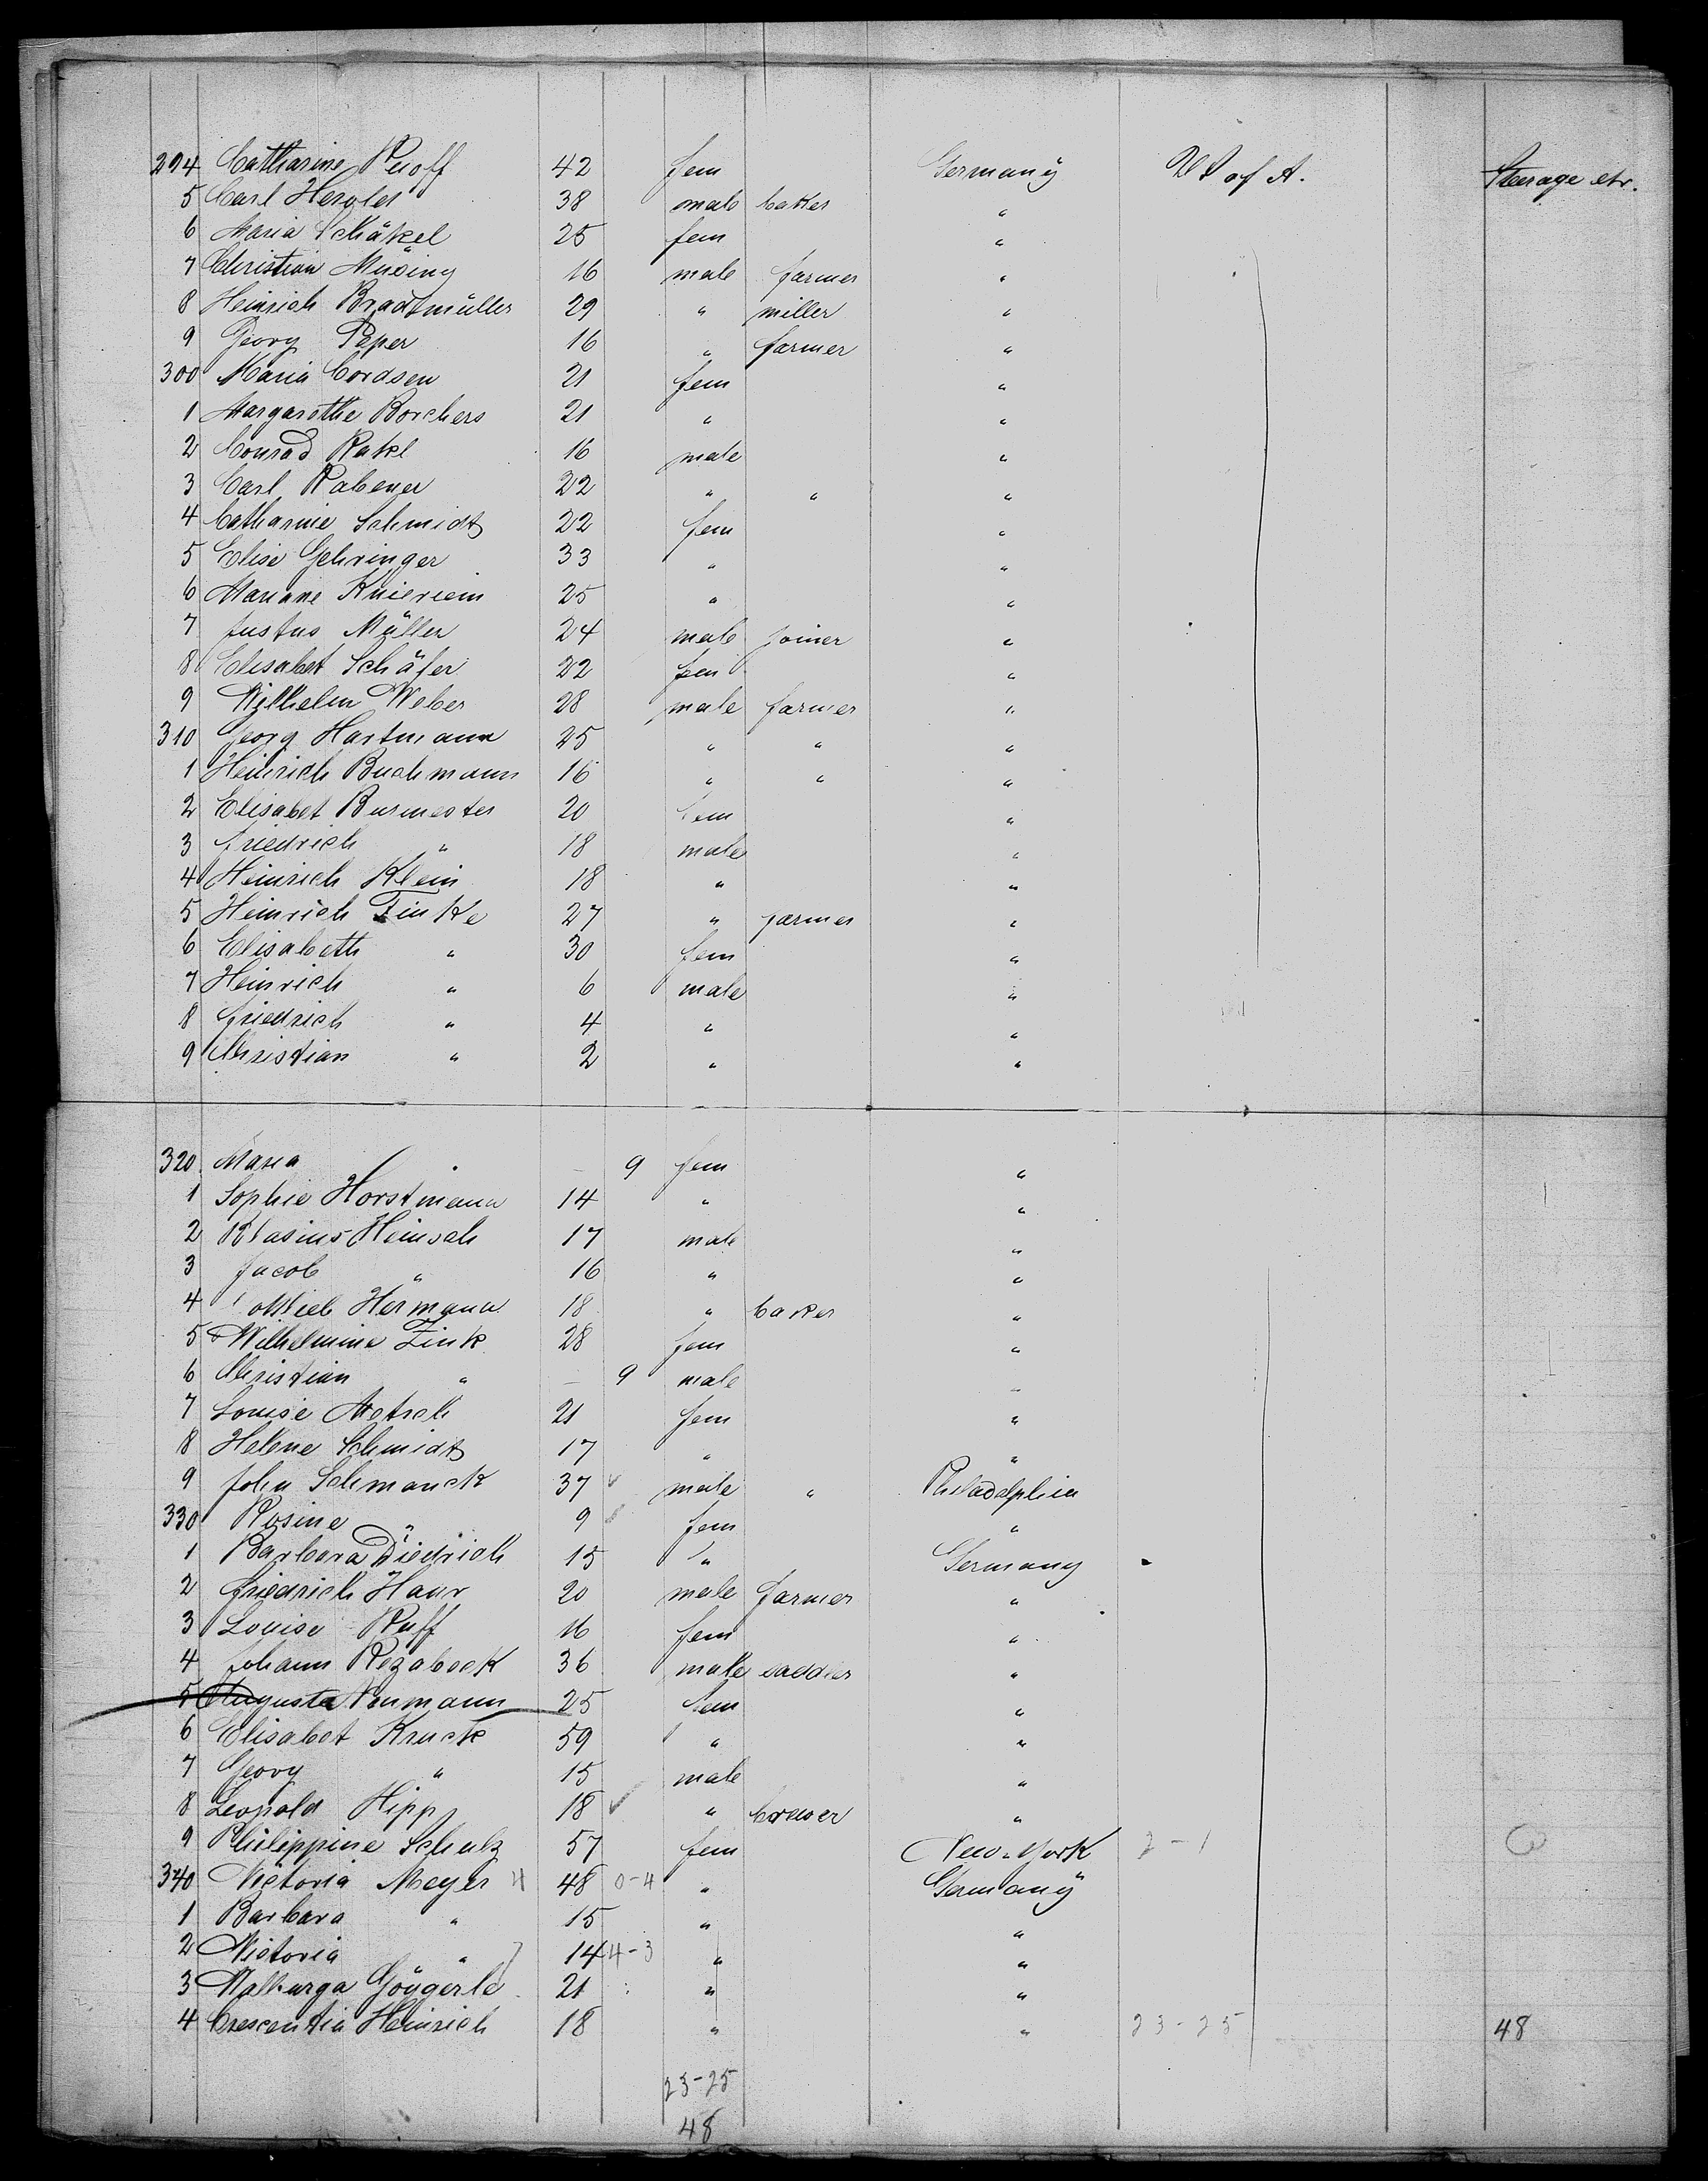 294 Catharine Ruoff 42 fem Germany US of A. Steerage etr.
5 Carl Herold 38 male baker "
6 Maria Schäkel 25 fem "
7 Christian Müsing 16 male farmer "
8 Heinrich Bradtmüller 29 " miller "
9 Georg Peper 16 " farmer "
300 Maria Cordsen 21 fem "
1 Margarethe Borchers 21 " "
2 Conrad Rakel 16 male "
3 Carl Rabener 22 " " "
4 Catharine Schmidt 22 fem "
5 Elise Gehringer 33 " "
6 Mariane Knieriem 25 " "
7 Justus Müller 24 male joiner "
8 Elisabet Schäfer 22 fem "
9 Wilhelm Weber 28 male farmer "
310 Georg Hartmann 25 " " "
1 Heinrich Buchmann 16 " " "
2 Elisabet Burmester 20 fem "
3 Friedrich " 18 male "
4 Heinrich Klein 18 " "
5 Heinrich Finke 27 " farmer "
6 Elisabeth " 30 fem "
7 Heinrich " 6 male "
8 Friedrich " 4 " "
9 Christian " 2 " "
320 Maria " — 9 fem "
1 Sophie Horstmann 14 " "
2 Blasius Heinsch 17 male "
3 Jacob " 16 " "
4 Gottlieb Hermann 18 " baker "
5 Wilhelmine Zink 28 fem "
6 Christian " — 9 male "
7 Louise 21 fem "
8 Helene Schmidt 17 " "
9 John Schmanck 37 male " Philadelphia
330 Rosine " 9 fem "
1 Barbara Diedrich 15 " Germany
2 Friedrich Haur 20 male farmer "
3 Louise Ruff 16 fem "
4 Johann Rezabeck 36 male saddler "
5 Auguste Neumann 25 fem "
6 Elisabet Kruck 59 " "
7 Georg " 15 male "
8 Leopold Hipp 18 " brewer "
9 Philippine Schulz 57 fem New-York 2-1
340 Victoria Meyer 4 48 0-4 " Germany
1 Barbara " 15 " "
2 Victoria " 14 4-3 " "
3 Walburga Göggerle 21 " "
4 Crescentia Heinrich 18 " " 23-25 48
23-25
48